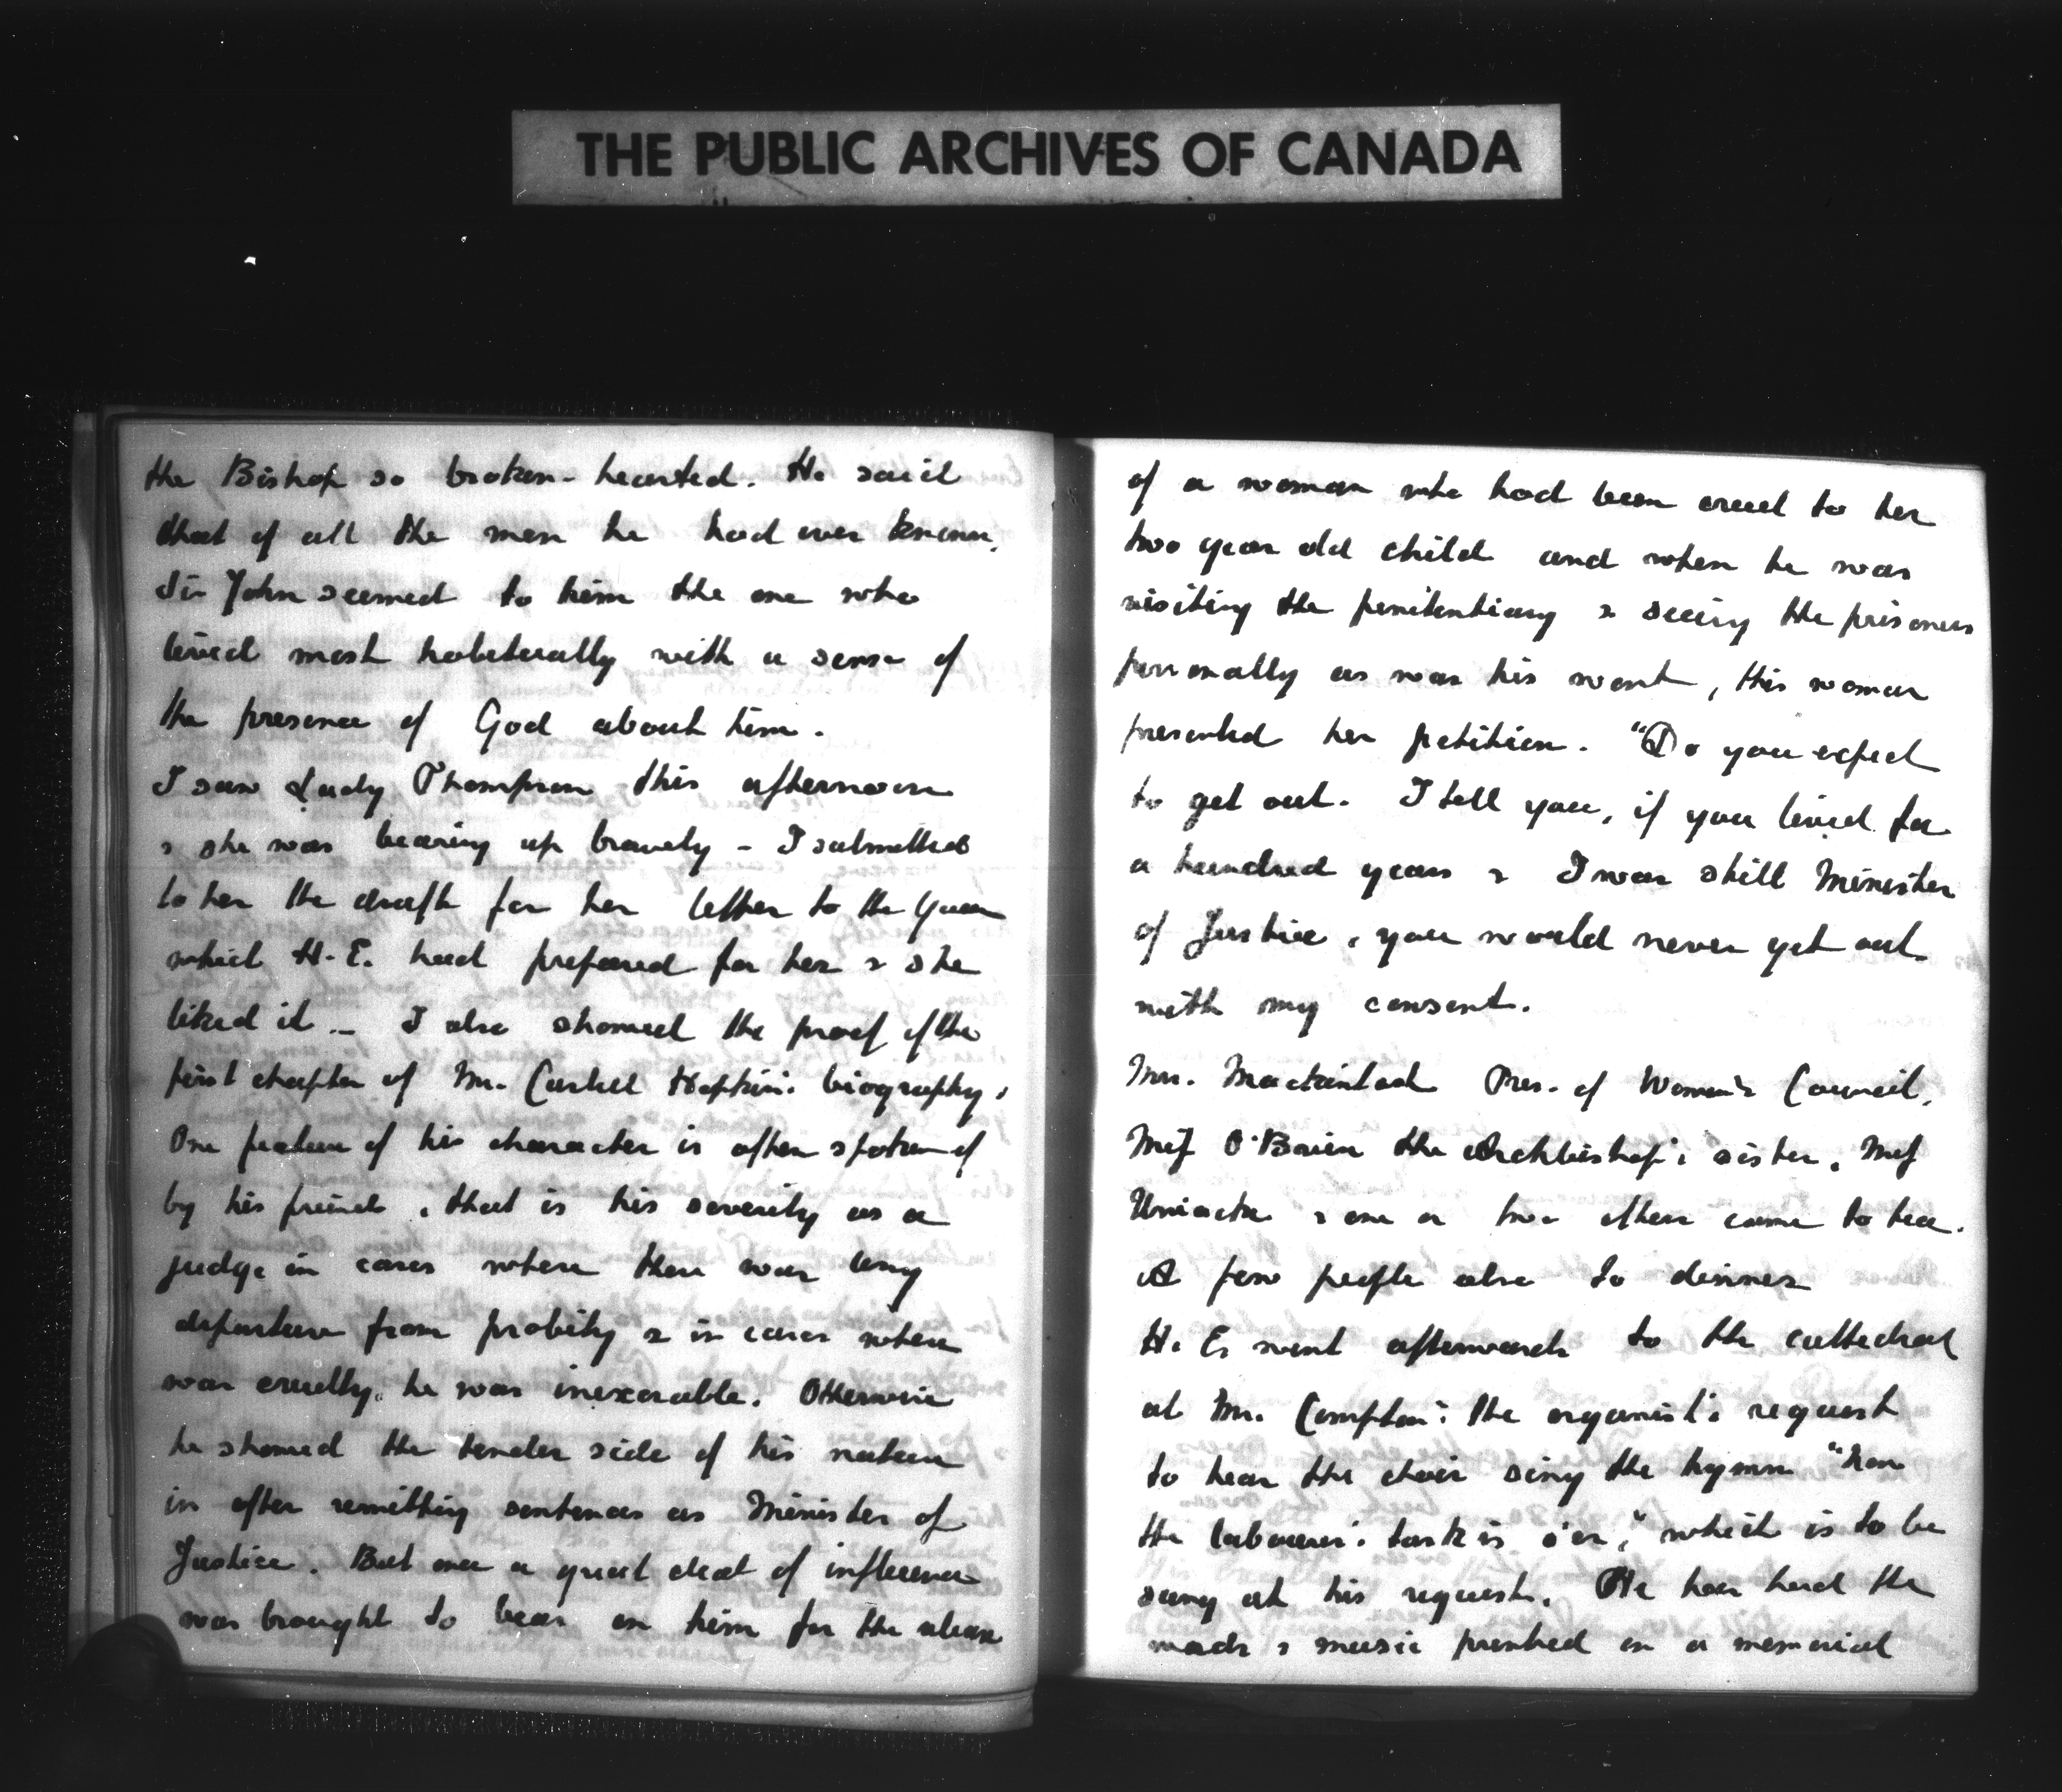 THE PUBLIC ARCHIVES OF CANADA
the Bishop so broken-hearted. He said
that of all the men he had ever known,
Sir John seemed to him the one who
lived most habitually with a sense of
the presence of God about him.
I saw Lady Thompson this afternoon
& she was bearing up bravely - I submitted
to her the draft for her letter to the Queen
which H.E. had prepared for her & she
liked it - I also showed the proof of the
first chapter of Mr. Castell Hopkins' biography.
One feature of his character is often spoken of
by his friends, that is his severity as a
judge in cases where there was any
departure from probity & in cases where
was cruelty, he was inexorable. Otherwise
he showed the tender side of his nature
in often remitting sentences as Minister of
Justice. But once a great deal of influence
was brought to bear on him for the release
of a woman who had been cruel to her
two year old child and when he was
visiting the penitentiary & seeing the prisoners
personally as was his wont, this woman
presented her petition. "Do you expect
to get out. I tell you, if you lived for
a hundred years & I was still Minister
of Justice, you would never get out
with my consent.
Mrs. Mackintosh Pres. of Women's Council,
Miss O'Brien the Archbishop's sister, Miss
Uniacke & one or two others came to tea.
A few people also to dinner
H. E. went afterwards to the cathedral
at Mr. Compton's the organist's request
to hear the choir sing the hymn "Now
the labourer's task is o'er," which is to be
sung at his request. He has had the
words & music printed on a memorial